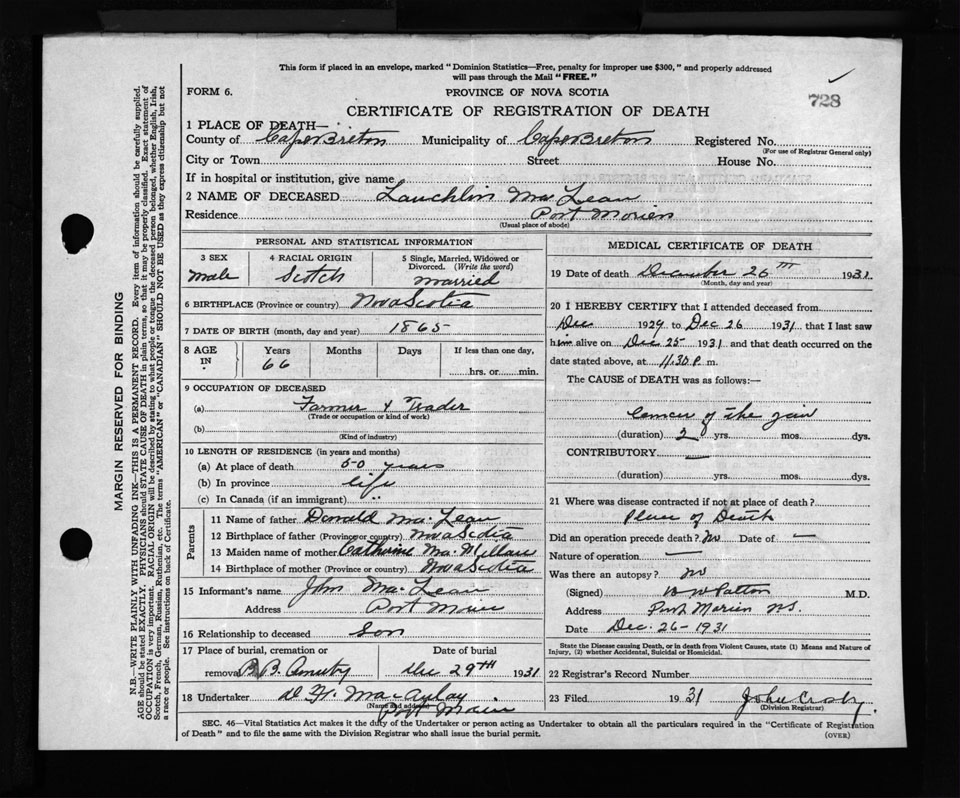 This form if placed in an envelope, marked "Dominion Statistics—Free, penalty for improper use $300," and properly addressed
will pass through the Mail "FREE."
728
FORM 6.
PROVINCE OF NOVA SCOTIA
CERTIFICATE OF REGISTRATION OF DEATH
1 PLACE OF DEATH—
County of Cape Breton Municipality of Cape Breton Registered No.
(For use of Registrar General only)
City or Town Street House No.
If in hospital or institution, give name
2 NAME OF DECEASED Lauchlin MacLean
Residence Port Morien
(Usual place of abode)
PERSONAL AND STATISTICAL INFORMATION
3 SEX
Male
4 RACIAL ORIGIN
Scotch
5 Single, Married, Widowed or
Divorced. (Write the word)
Married
6 BIRTHPLACE (Province or country) Nova Scotia
7 DATE OF BIRTH (month, day and year) 1865
8 AGE IN
Years Months Days If less than one day,
66
hrs. or min.
9 OCCUPATION OF DECEASED
(a) Farmer & Trader
(Trade or occupation or kind of work)
(b)
(Kind of industry)
10 LENGTH OF RESIDENCE (in years and months)
(a) At place of death 50 years
(b) In province life
(c) In Canada (if an immigrant) "
Parents
11 Name of father Donald MacLean
12 Birthplace of father (Province or country) Nova Scotia
13 Maiden name of mother Catherine MacMillan
14 Birthplace of mother (Province or country) Nova Scotia
15 Informant's name John MacLean
Address Port Morien
16 Relationship to deceased Son
17 Place of burial, cremation or
removal B.B.
Date of burial
Dec 29TH 1931
18 Undertaker MacAulay
(Name and address)
Port Morien
MEDICAL CERTIFICATE OF DEATH
19 Date of death December 26TH 1931
(Month, day and year)
20 I HEREBY CERTIFY that I attended deceased from
Dec 1929 to Dec 26 1931 that I last saw
him alive on Dec 25 1931 and that death occurred on the
date stated above, at 11.30 P. m.
The CAUSE of DEATH was as follows:—
Cancer of the jaw
(duration) 2 yrs. mos. dys.
CONTRIBUTORY —
(duration) yrs. mos. dys.
21 Where was disease contracted if not at place of death?
Place of Death
Did an operation precede death? No Date of —
Nature of operation —
Was there an autopsy? no
(Signed) W W Patton M.D.
Address Port Morien N.S.
Date Dec. 26-1931
State the Disease causing Death, or in death from Violent Causes, state (1) Means and Nature of
Injury, (2) whether Accidental, Suicidal or Homicidal.
22 Registrar's Record Number
23 Filed 1931 John
(Division Registrar)
SEC. 46—Vital Statistics Act makes it the duty of the Undertaker or person acting as Undertaker to obtain all the particulars required in the "Certificate of Registration
of Death" and to file the same with the Division Registrar who shall issue the burial permit.
(OVER)
MARGIN RESERVED FOR BINDING
N.B.—WRITE PLAINLY WITH UNFADING INK—THIS IS A PERMANENT RECORD. Every item of information should be carefully supplied.
AGE should be stated EXACTLY. PHYSICIANS should STATE CAUSE OF DEATH in plain terms, so that it may be properly classified. Exact statement of
OCCUPATION is very important. RACIAL ORIGIN will be described by stating to what people or tongue the deceased person belonged, whether English, Irish,
Scotch, French, German, Russian, Ruthenian, etc. The terms "AMERICAN" or "CANADIAN" SHOULD NOT BE USED as they express citizenship but not
a race or people. See instructions on back of Certificate.